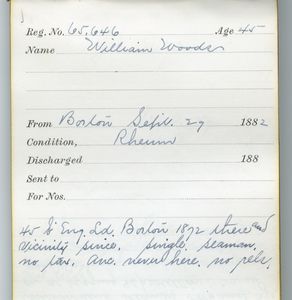 Reg. No. 65,646 Age 45
Name William Woods
From Boston Sept. 29 1882
Condition, Rheum
Discharged 188
Sent to
For Nos.
45 b' Eng. Ld. Boston 1872 there and
vicinity since. single. seaman.
no par. anc. never here. no rels.